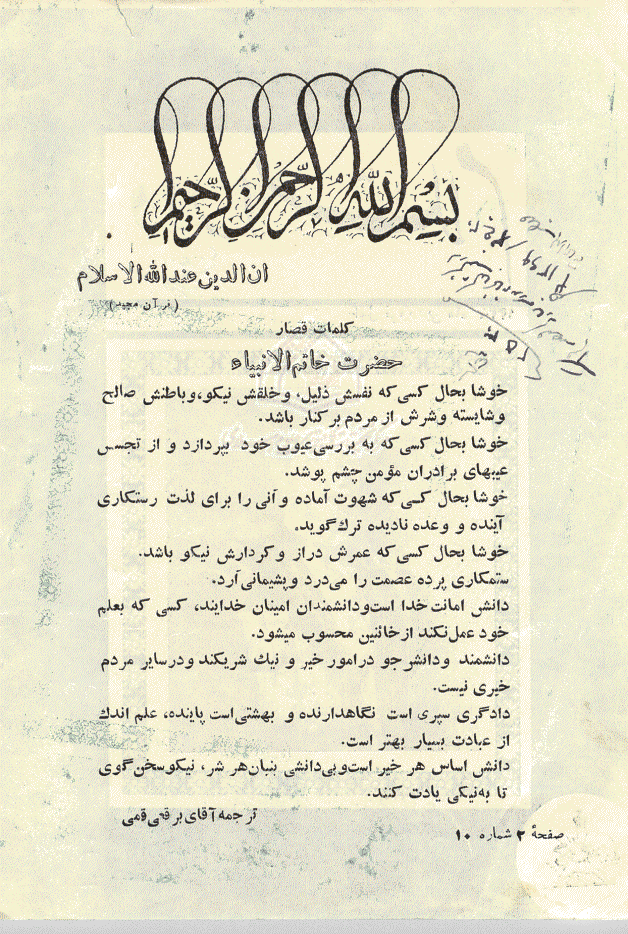 بسم الله الرحمن الرحیم
ان الدین عند الله الاسلام
(قرآن مجید)
کلمات قصار
حضرت خاتم الانبیاء
خوشا بحال کسی که نفسش ذلیل، وخلقش نیکو، وباطنش صالح
وشایسته وشرش از مردم برکنار باشد.
خوشا بحال کسی که به بررسی عیوب خود بپردازد و از تجسس
عیبهای برادران مؤمن چشم پوشد.
خوشا بحال کسی که شهوت آماده وآنی را برای لذت رستکاری
آینده و وعده نادیده ترك گوید.
خوشا بحال کسی که عمرش دراز وکردارش نیکو باشد.
ستمکاری پرده عصمت را می‌درد وپشیمانی آرد.
دانش امانت خدا است ودانشمندان امینان خدایند، کسی که بعلم
خود عمل نکند از خائنین محسوب میشود.
دانشمند ودانش جو درامور خیر و نیك شریکند ودرسایر مردم
خیری نیست.
دادگری سپری است نگاهدارنده و بهشتی است پاینده، علم اندك
از عبادت بسیار بهتر است.
دانش اساس هر خیر است وبی‌دانشی بنیان هر شر، نیکو سخن گوی
تا به‌نیکی یادت کنند.
ترجمه آقای برقعی قمی
صفحهٔ ۲ شماره ۱۰